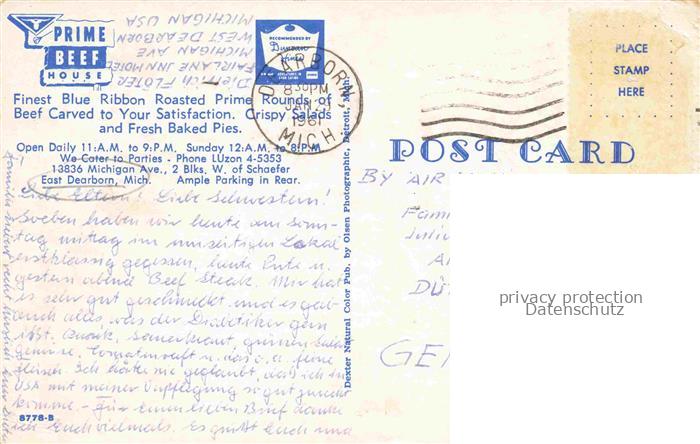 PRIME
BEEF
HOUSE
Dietrich FLÖTER
FAIRLANE INN MOTEL
MICHIGAN AVE
WEST DEARBORN
MICHIGAN USA
RECOMMENDED BY
Duncan
Hines
DEARBORN
8 30 PM
JAN 29
1961
MICH.
PLACE
STAMP
HERE
Finest Blue Ribbon Roasted Prime Rounds of
Beef Carved to Your Satisfaction. Crispy Salads
and Fresh Baked Pies.
Open Daily 11:A.M. to 9:P.M. Sunday 12:A.M. to 8:P.M.
We Cater to Parties - Phone LUzon 4-5353
13836 Michigan Ave., 2 Blks. W. of Schaefer
East Dearborn, Mich. Ample Parking in Rear.
Liebe Eltern! Liebe Schwestern!
Soeben haben wir heute am Sonn-
tag mittag im umseitigen Lokal
erstklassig gegessen, heute Pute u.
gestern abend Beef Steak. Mir hat
es sehr gut geschmeckt und es gab
auch alles, was der Diabetiker gern
ißt. Quark, Sauerkraut, grünen Salat,
gemüse, Tomatensaft u. das o. a. feine
Fleisch. Ich hätte nie geglaubt, daß ich in
USA mit meiner Verpflegung so gut zurecht
komme. - Für Euren lieben Brief danke
ich Euch vielmals. Es grüßt Euch und
8778-B
Dexter Natural Color Pub. by Olsen Photographic, Detroit, Mich.
POST CARD
BY AIR
Fami
Juliu
DÜ
GE
privacy protection
Datenschutz